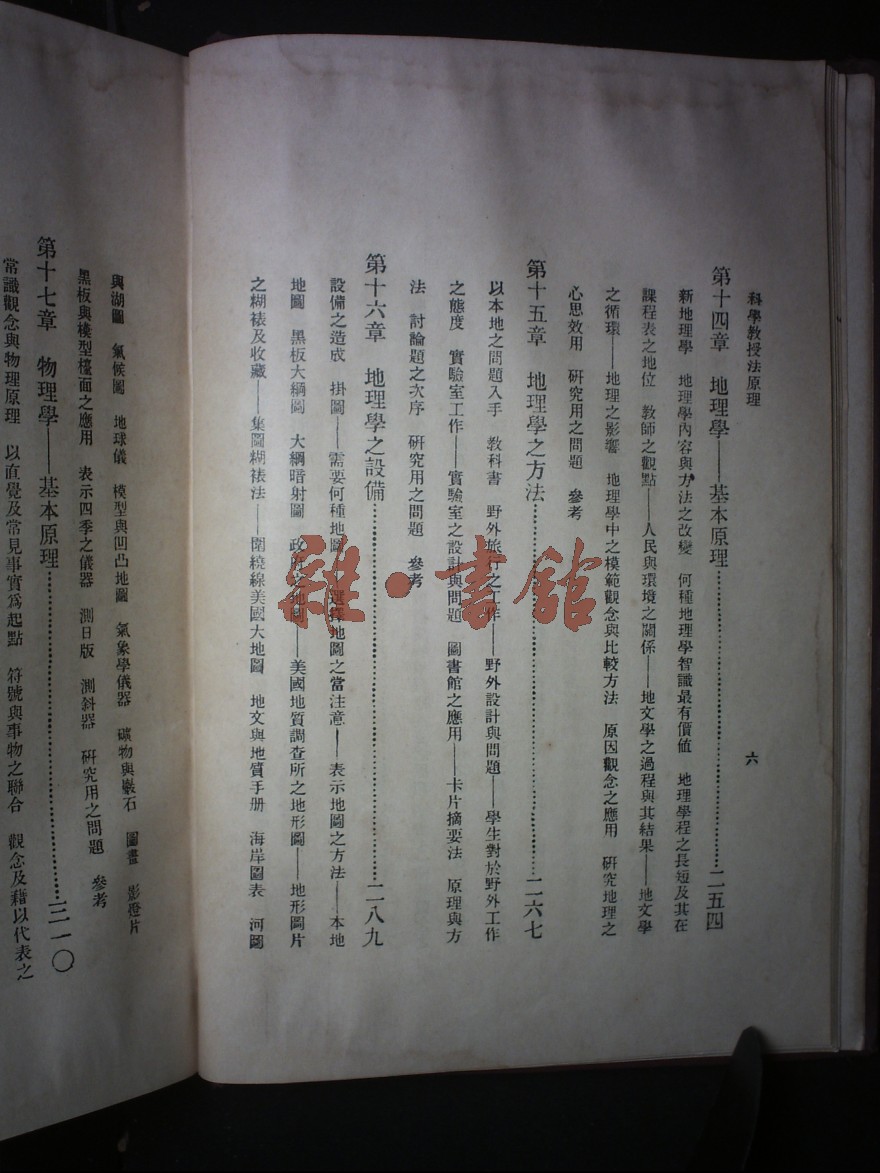 科學教授法原理
六
第十四章 地理學——基本原理……二五四
新地理學 地理學內容與方法之改變 何種地理學智識最有價値 地理學程之長短及其在
課程表之地位 教師之觀點——人民與環境之關係——地文學之過程與其結果——地文學
之循環——地理之影響 地理學中之模範觀念與比較方法 原因觀念之應用 研究地理之
心思效用 研究用之問題 參考
第十五章 地理學之方法……二六七
以本地之問題入手 教科書 野外旅行之工作——野外設計與問題——學生對於野外工作
之態度 實驗室工作——實驗室之設計與問題 圖書館之應用——卡片摘要法 原理與方
法 討論題之次序 研究用之問題 參考
第十六章 地理學之設備……二八九
設備之造成 掛圖——需要何種地圖——選擇地圖之當注意——表示地圖之方法——本地
地圖 黑板大綱圖 大綱暗射圖 政府之地圖——美國地質調查所之地形圖——地形圖片
之糊裱及收藏——集圖糊裱法——圍繞線美國大地圖 地文與地質手册 海岸圖表 河圖
與湖圖 氣候圖 地球儀 模型與凹凸地圖 氣象學儀器 礦物與巖石 圖畫 影燈片
黑板與模型檯面之應用 表示四季之儀器 測日版 測斜器 研究用之問題 參考
第十七章 物理學——基本原理……三一〇
常識觀念與物理原理 以直覺及常見事實爲起點 符號與事物之聯合 觀念及藉以代表之
雜·書館